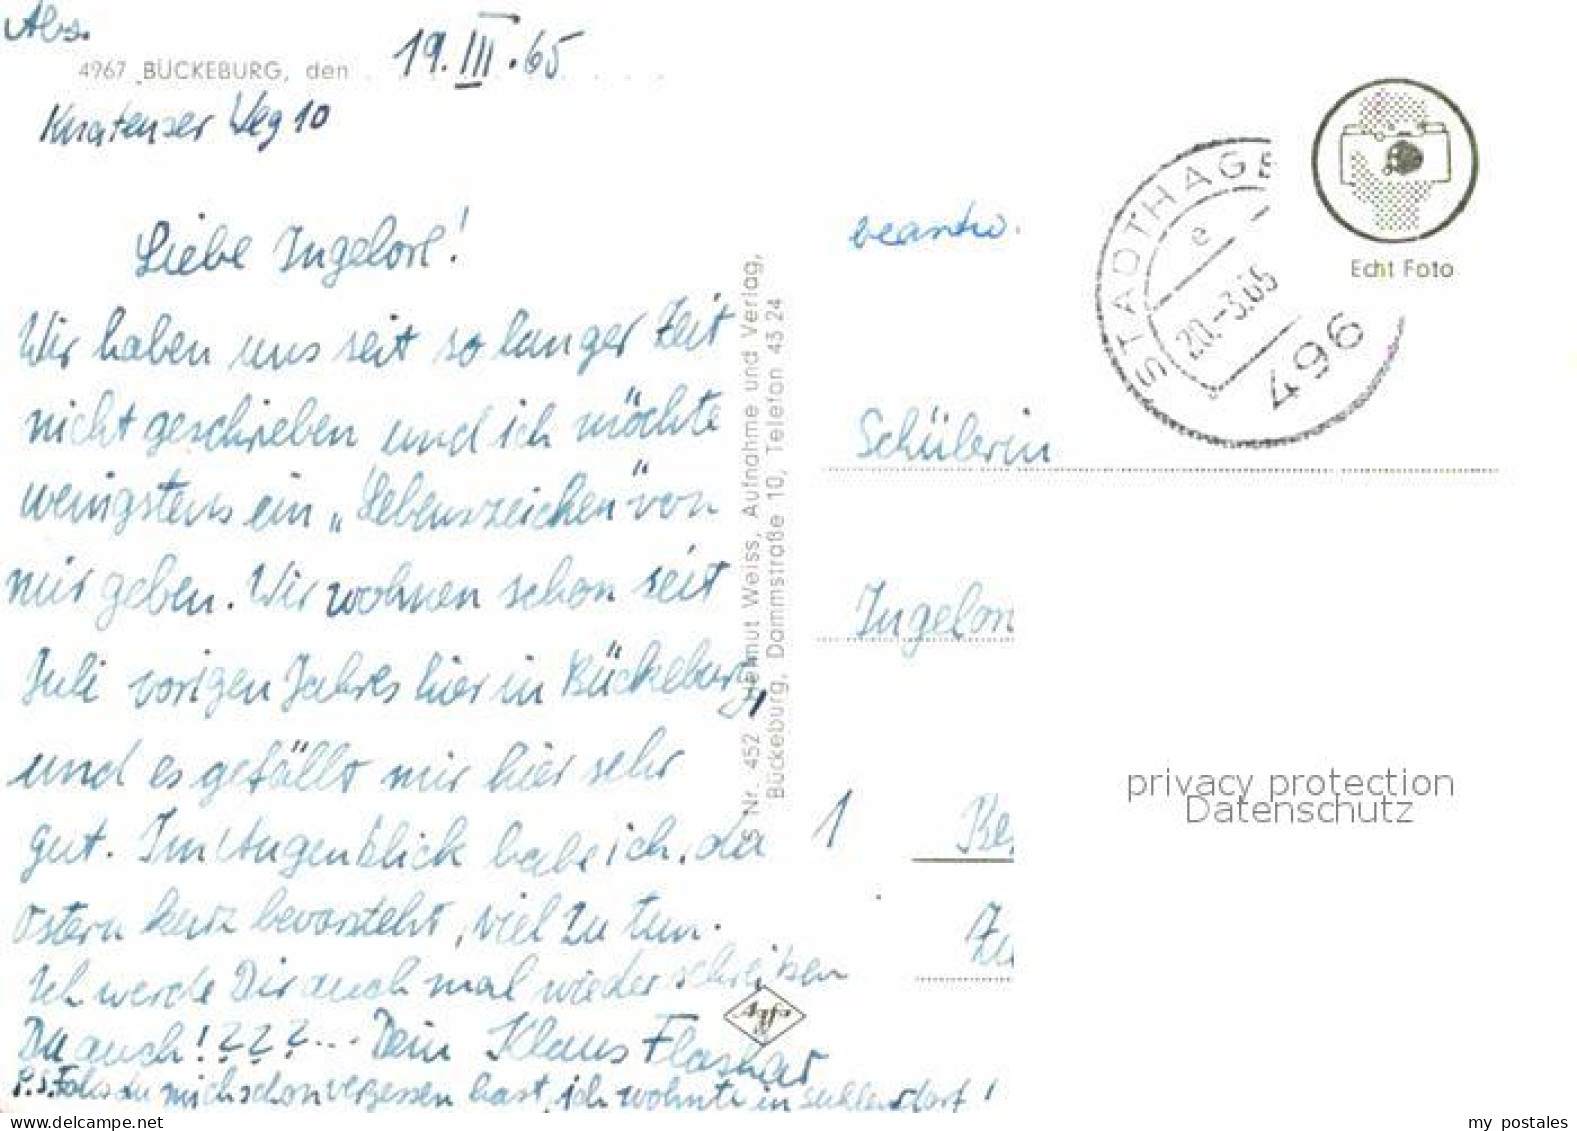 Abs.
4967 BÜCKEBURG, den 19. III. 65
Knatenser Weg 10
Liebe Ingelore!
Wir haben uns seit so langer Zeit
nicht geschrieben und ich möchte
wenigstens ein „Lebenszeichen" von
mir geben. Wir wohnen schon seit
Juli vorigen Jahres hier in Bückeburg,
und es gefällt mir hier sehr
gut. Im Augenblick habe ich, da
Ostern kurz bevorsteht, viel zu tun.
Ich werde Dir auch mal wieder schreiben
Du auch! ? ? ? ... Dein Klaus Flashar
P.S. Falls du mich schon vergessen hast, ich wohnte in Suhlendorf!
S Nr. 452 Helmut Weiss, Aufnahme und Verlag,
Bückeburg, Dammstraße 10, Telefon 43 24
beantw.
STADTHAGE
e
20.-3.65
496
Echt Foto
Schülerin
Ingelor
1
Be
privacy protection
Datenschutz
delcampe.net
my postales